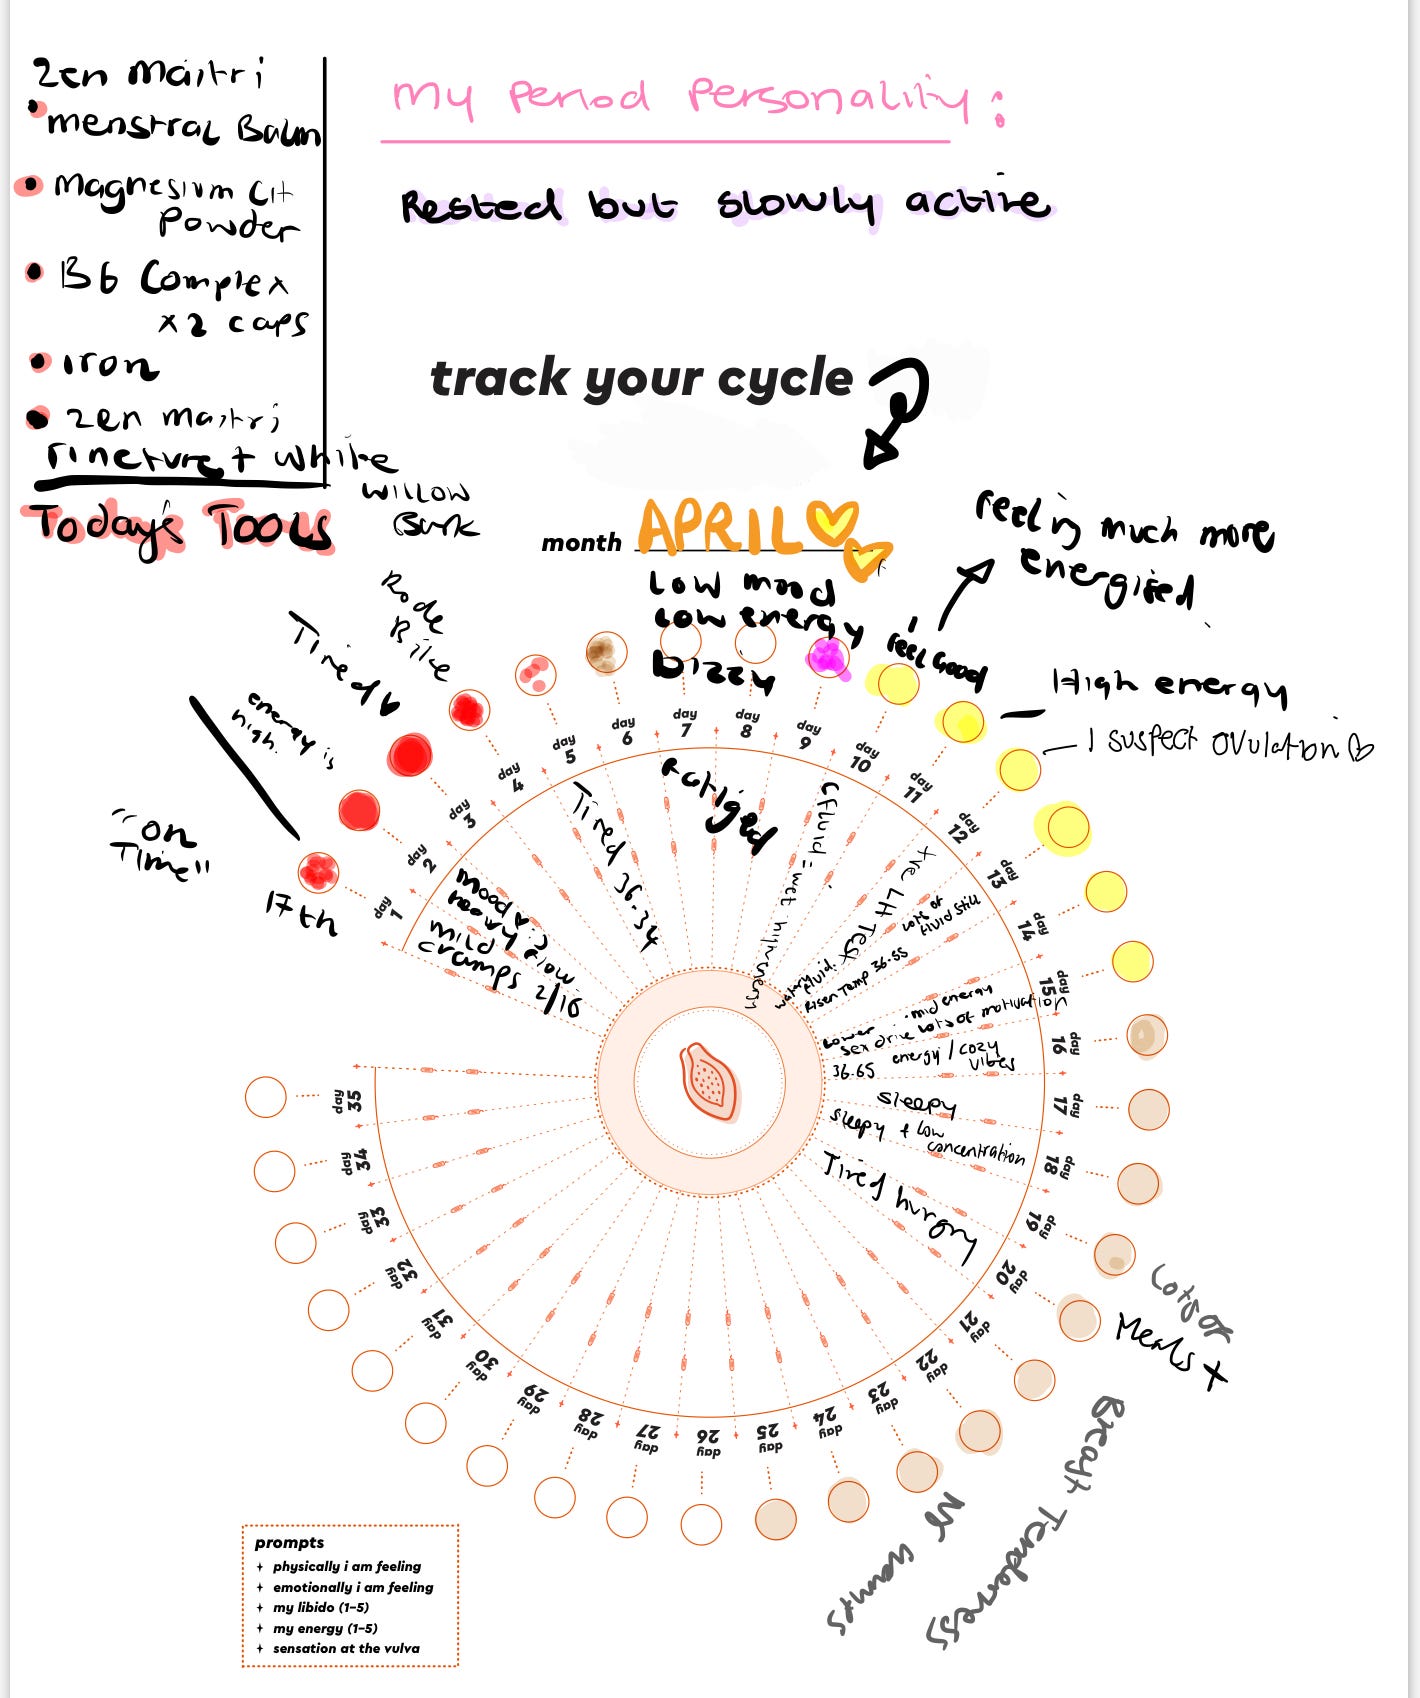 Zen Maitri
• menstral Balm
• Magnesium Cit
Powder
• B6 Complex
x2 caps
• Iron
• Zen Maitri
Tincture + White
Willow
Bark
Today's Tools
My Period Personality:
Rested but slowly active
track your cycle
month APRIL
Low mood
Low energy
Dizzy
Feel Good
Feeling much more
energised
High energy
I suspect ovulation
Rode
Bike
Tired
energy is
high.
"on
Time"
17th
day 1
day 2
day 3
day 4
day 5
day 6
day 7
day 8
day 9
day 10
day 11
day 12
day 13
day 14
day 15
day 16
day 17
day 18
day 19
day 20
day 21
day 22
day 23
day 24
day 25
day 26
day 27
day 28
day 29
day 30
day 31
day 32
day 33
day 34
day 35
Mood
heavy flow
mild
cramps 2/10
Tired 36.34
Fatiged
C fluid = wet
watery
fluid.
+ve LH Test
Risen Temp 36.55
Lots of
fluid still
Lower
sex drive
mid energy
Lots of motivation
36.65
energy / cozy
vibes
Sleepy
sleepy + low
concentration
Tired hurgry
Lots of
Meals +
Breast Tenderness
prompts
+ physically i am feeling
+ emotionally i am feeling
+ my libido (1–5)
+ my energy (1–5)
+ sensation at the vulva